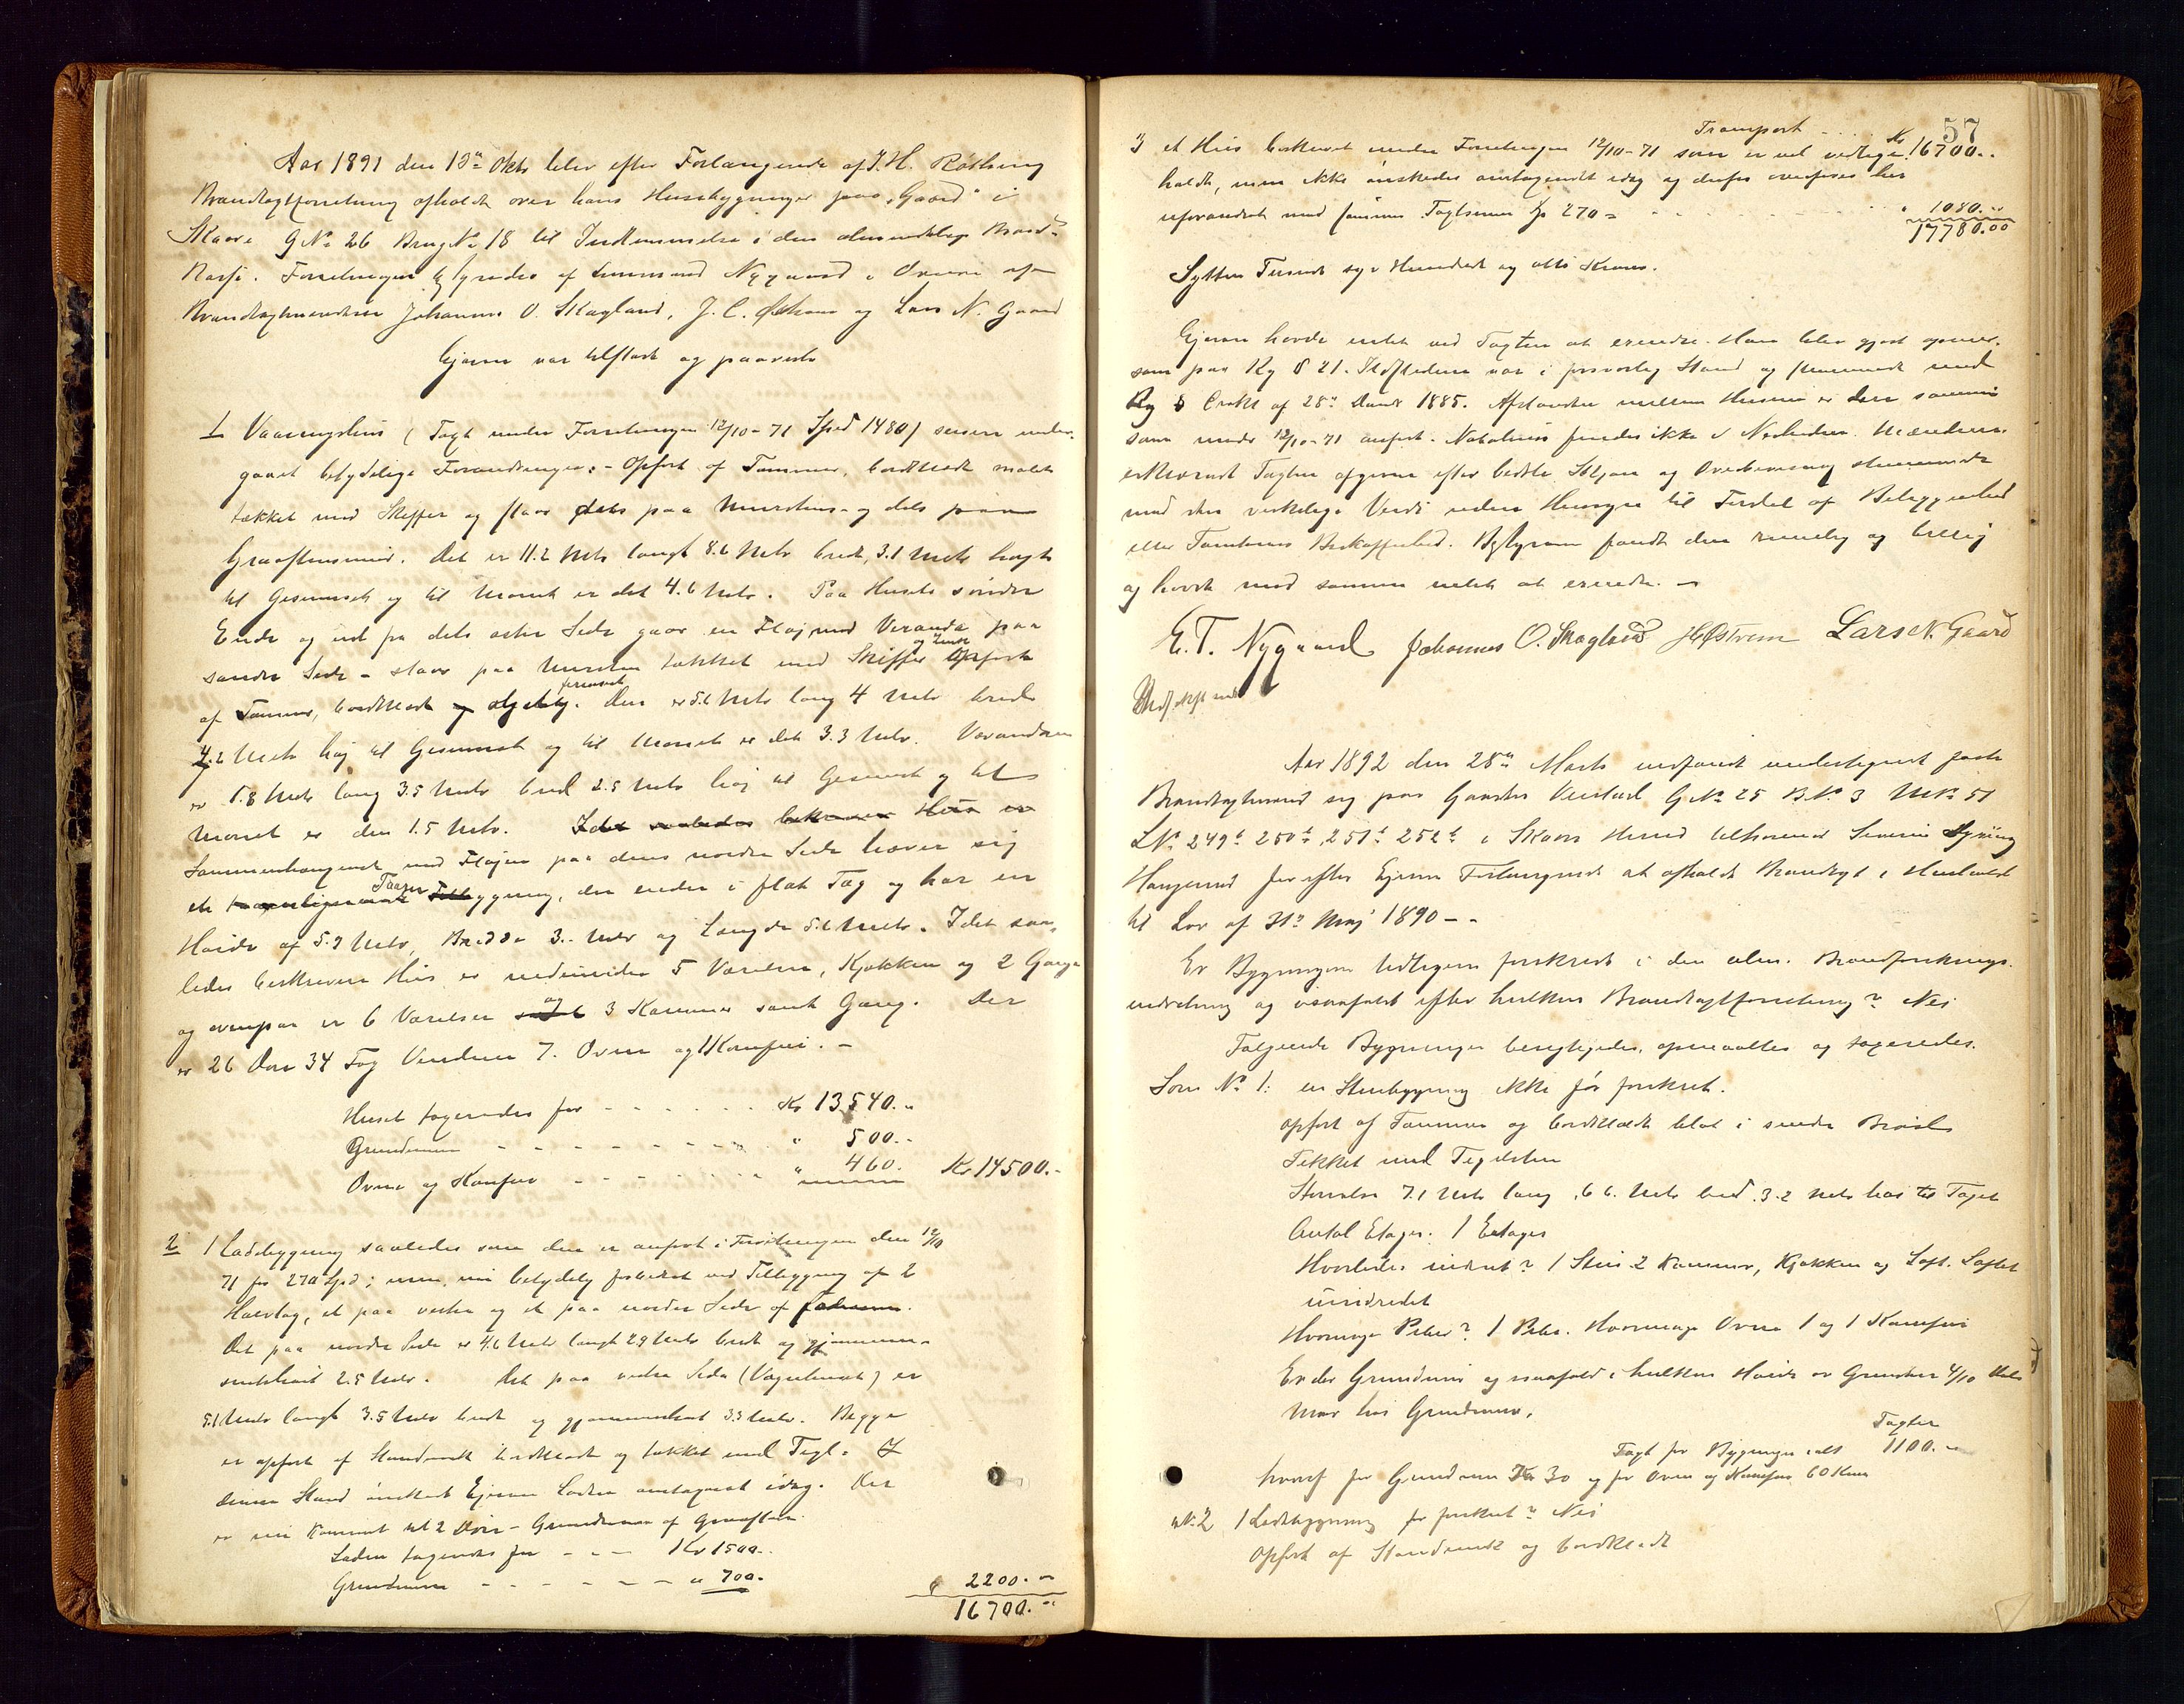 Aar 1891 den 13de Okt blev efter Forlangende af J. H. Røthing
Brandtagtforretning afholdt over hans Husebygninger paa „Gaard“ i
Skaare G No 26 Brug No 18 til Indlemmelse i den almindelige Brand-
kasse. Forretningen bestyredes af Lensmand Nygaard i Overvær af
Brandtagtmændene Johannes O. Skagland, J. C. Østrem og Lars N. Gaard
Ejeren var tilstede og paaviste
1 Vaaningshus (Tagt under Forretningen 12/10-71 Spd 1480) senere under-
gaaet betydelige Forandringer: - Opført af Tømmer, bordklædt malet
tækket med Skiffer og staar dels paa Murstens- og dels paa
Graastensmur. Det er 11.2 Meter langt 8.6 Meter bredt, 3.1 Meter høgt
til Gesimset og til Mønet er det 4.6 Meter. Paa Husets søndre
Ende og ud fra dets østre Side gaar en Fløj med Veranda paa
søndre Side - staar paa Mursten tækket med Skiffer og Zink Opført
af Tømmer, bordklædt. Den er 5.6 Meter lang 4 Meter bred
4.2 Meter høj til Gesimset og til Mønet er det 3.3 Meter. Verandaen
er 1.8 Meter lang 3.5 Meter bred 2.5 Meter høj til Gesimset og til
Mønet er den 1.5 Meter.
Sammenhængende med Fløjen paa dens nordre Side hæver sig
et Taarn ygning, der ender i flat Tag og har en
Høide af 5.9 Meter, Bredde 3.. Meter og Længde 5.6 Meter. I det saa-
ledes beskrevne Hus er nedenunder 5 Værelser, Kjøkken og 2 Gange
og ovenpaa er 6 Værelser og 3 Kammer samt Gang. Der
er 26 Døre 34 Fag Vinduer 7. Ovne og 1 Komfur. -
Huset taxeredes for - - - - - - Kr 13540. "
Grundmuren - - - - - - - - " 500. -
Ovne og Komfur - - - - - - " 460. Kr 14500. -
2 1 Ladebygning saaledes som den er anført i Forretningen den 12/10
71 for 270 Spd; men nu betydelig forbedret ved Tilbygning af 2
Halvtag, et paa vestre og et paa nordre Side af Laden.
Det paa nordre Side er 4.6 Meter langt 2.9 Meter bredt og gjennem-
snitshøit 2.5 Meter. Det paa vestre Side (Vognhuset) er
5.1 Meter langt 3.5 Meter bredt og gjennemsnit 3.3 Meter. Begge
er opført af Standværk bordklædt og tækket med Tegl. I
denne Stand ønsket Ejeren Laden antaget idag. Der
er nu kommet til 2 Døre - Grundmur af Graasten.
Laden taxeredes for - - - Kr 1500. -
Grundmuren - - - - - - " 700. -
2200. "
16700. "
57
Transport - . . . Kr 16700. .
3) et Hus beskrevet under Forretningen 12/10-71 som er vel vedlige-
holdt, men ikke ønskedes omtagseret idag og derfor overføres her
uforandret med samme Tagtsum Sp 270 = - - - - " 1080. "
17780.00
Sytten Tusinde syv Hundrede og otti Kroner.
Ejeren havde intet ved Tagten at erindre. Han blev gjort opmærk-
som paa Lg § 21. Ildstederne var i forsvarlig Stand og stemmende med
Lg § Cirkl af 28de Marts 1885. Afstanden mellem Husene er den samme
som under 12/10-71 anført. Nabohus findes ikke i Nærheden. Mændene
erklærede Tagten afgiven efter bedste Skjøn og Overbevisning stemmende
med den virkelige Værdi uden Hensyn til Fordel af Beliggenhed
eller Tomtens Beskaffenhed. Bestyreren fandt den rimelig og billig
og havde mod samme intet at erindre. -
E. T. Nygaard Johannes O. Skagland J C Østrem Lars N. Gaard
Aar 1892 den 28de Marts indfandt undertegnede faste
Brandtagtmænd sig paa Gaarden G No 25 B No 3 M No 51
L No 249b 250b, 251b 252b i Skaare Herred tilhørende Severin
for efter Ejerens Forlangende at afholde Brandtagt i Henhold
til Lov af 31te Maj 1890 - -
Er Bygningerne tidligere forsikret i den alm. Brandforsikrings-
indretning og isaafald efter hvilken Brandtagtforretning? Nei
Følgende Bygninger besigtigedes, opmaaltes og taxeredes.
Som No 1: en Stuebygning ikke før forsikret.
opført af Tømmer og bordklædt blot i søndre
Tækket med Teglsten
Størrelse 7.1 Meter lang, 6 6. Meter bred. 3.2 Meter høi til Taget
Antal Etager. 1 Etager
Hvorledes indredet? 1 Stue 2 Kammer, Kjøkken og Loft. Loftet
uindredet
Hvormange Piber? 1 Pibe. Hvormange Ovne 1 og 1 Komfur
Er der Grundmur og isaafald i hvilken Høide er Grunden 4/10 Meter
Mur høi Grundmur.
Tagten
Tagt for Bygningen ialt 1100. -
hvoraf for Grundmur Kr 30 og for Ovne og Komfur 60 Kroner
No 2 1 Ladebygning før forsikret? Nei
Opført af Standværk og bordklædt